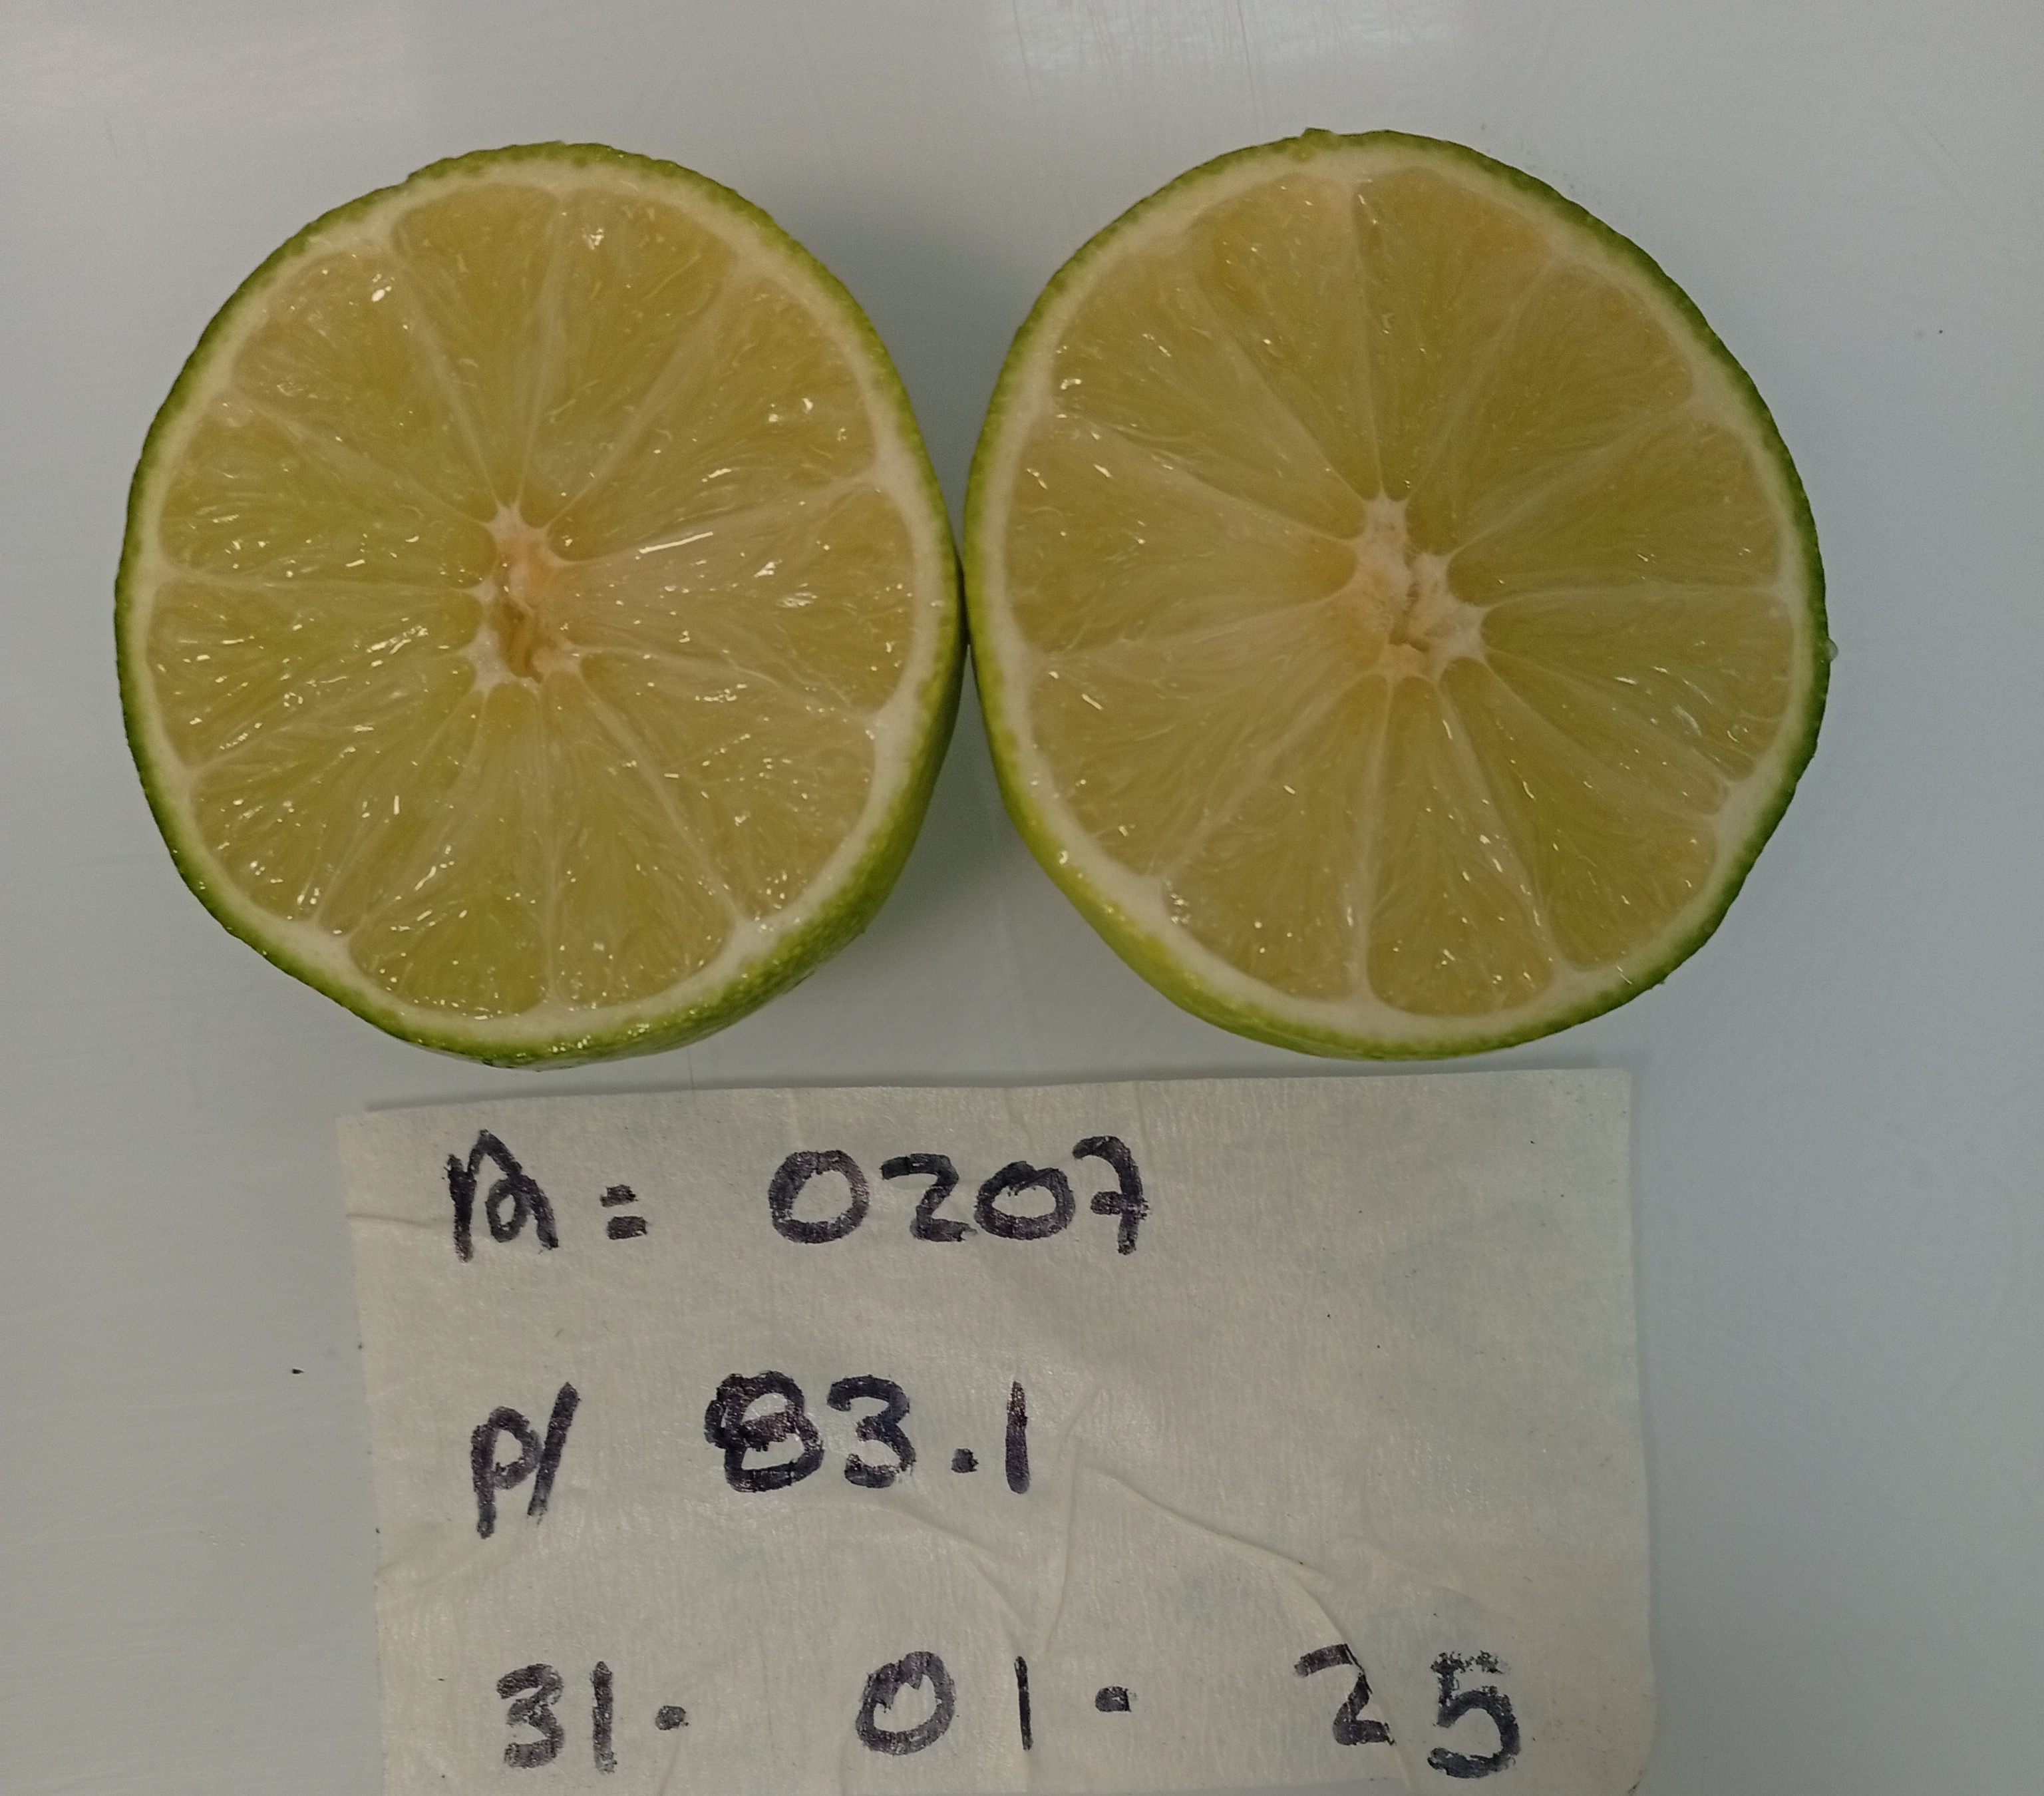 A = 0207
P/ 83.1
31. 01. 25